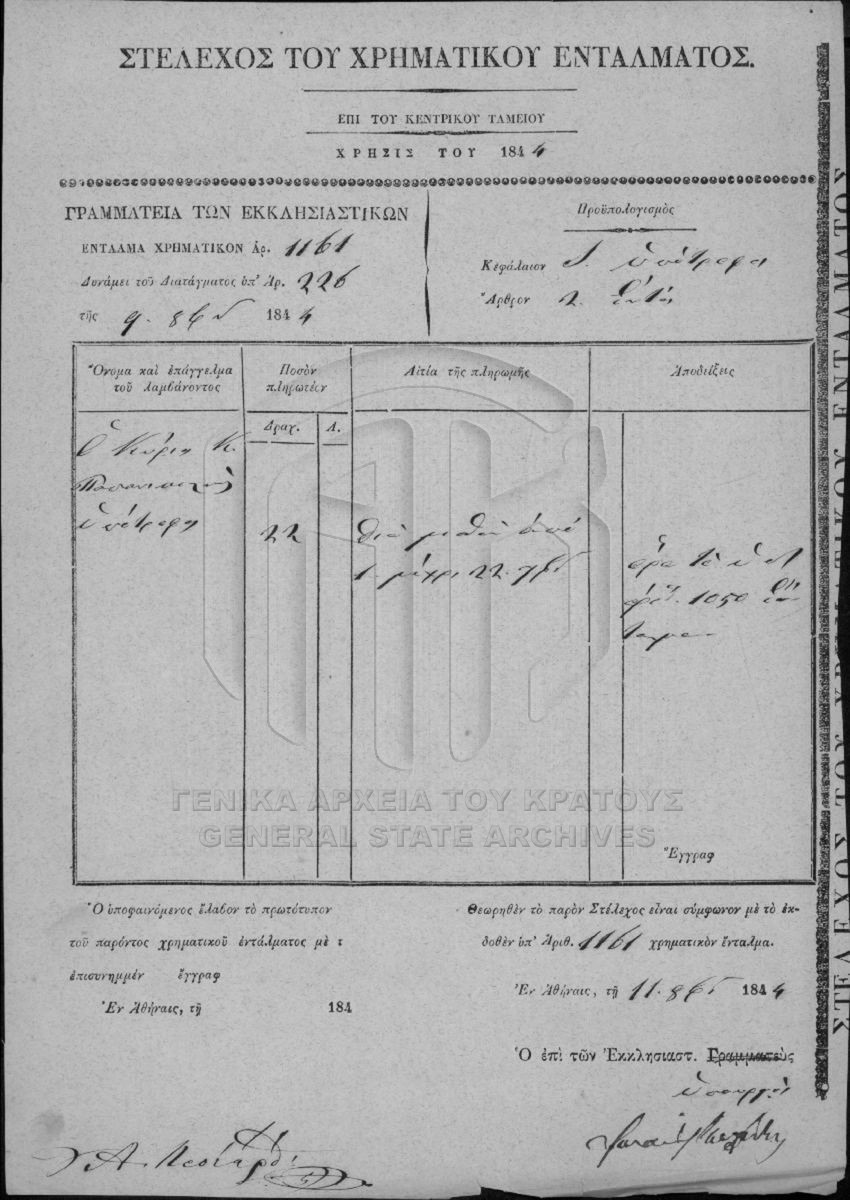 ΣΤΕΛΕΧΟΣ ΤΟΥ ΧΡΗΜΑΤΙΚΟΥ ΕΝΤΑΛΜΑΤΟΣ.
ΕΠΙ ΤΟΥ ΚΕΝΤΡΙΚΟΥ ΤΑΜΕΙΟΥ
ΧΡΗΣΙΣ ΤΟΥ 1844
ΓΡΑΜΜΑΤΕΙΑ ΤΩΝ ΕΚΚΛΗΣΙΑΣΤΙΚΩΝ
ΕΝΤΑΛΜΑ ΧΡΗΜΑΤΙΚΟΝ Ἀρ. 1161
Δυνάμει τοῦ Διατάγματος ὑπ' Ἀρ. 226
τῆς 9. 8βρίου 1844
Προϋπολογισμὸς
Κεφάλαιον ὑπότροφοι
Ἄρθρον 2.
Ὄνομα καὶ ἐπάγγελμα
τοῦ λαμβάνοντος
Ποσὸν
πληρωτέον
Δραχ. Λ.
Αἰτία τῆς πληρωμῆς
Ἀποδείξεις
Ὁ Κύριος Κ.
ὑπότροφος
22
διὰ μισθὸν ἀπὸ
1. μέχρι 22. 7βρίου
1050
Ἔγγραφ
ΓΕΝΙΚΑ ΑΡΧΕΙΑ ΤΟΥ ΚΡΑΤΟΥΣ
GENERAL STATE ARCHIVES
Ὁ ὑποφαινόμενος ἔλαβον τὸ πρωτότυπον
τοῦ παρόντος χρηματικοῦ ἐντάλματος μὲ τ
ἐπισυνημμέν ἔγγραφ
Ἐν Ἀθήναις, τῇ 184
Θεωρηθὲν τὸ παρὸν Στέλεχος εἶναι σύμφωνον μὲ τὸ ἐκ-
δοθὲν ὑπ' Ἀριθ. 1161 χρηματικὸν ἔνταλμα.
Ἐν Ἀθήναις, τῇ 11. 8βρίου 1844
Ὁ ἐπὶ τῶν Ἐκκλησιαστ. Γραμματεὺς
ὑπουργὸς
ΣΤΕΛΕΧΟΣ ΤΟΥ ΧΡΗΜΑΤΙΚΟΥ ΕΝΤΑΛΜΑΤΟΣ